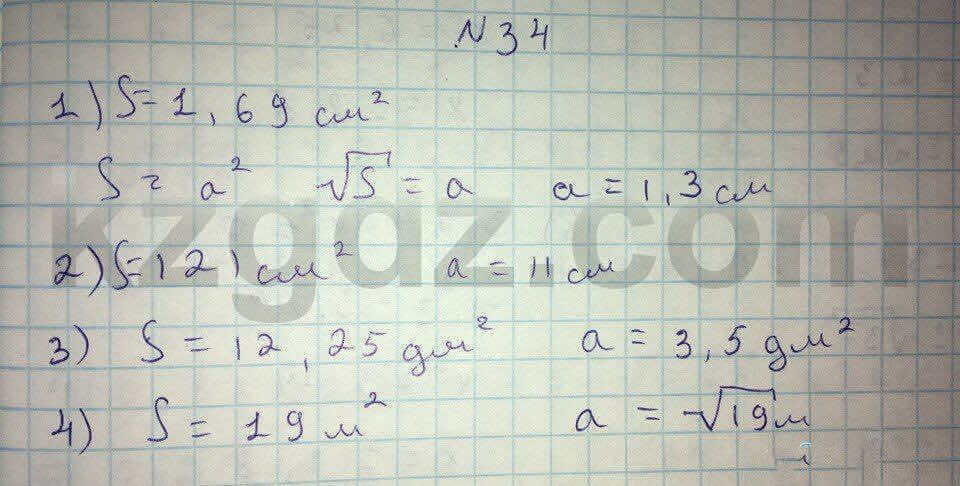 N34
1) S = 1,69 см²
S = a² √S = a a = 1,3 см
kzgdz.com
2) S = 121 см² a = 11 см
3) S = 12,25 дм² a = 3,5 дм²
4) S = 19 м² a = √19 м